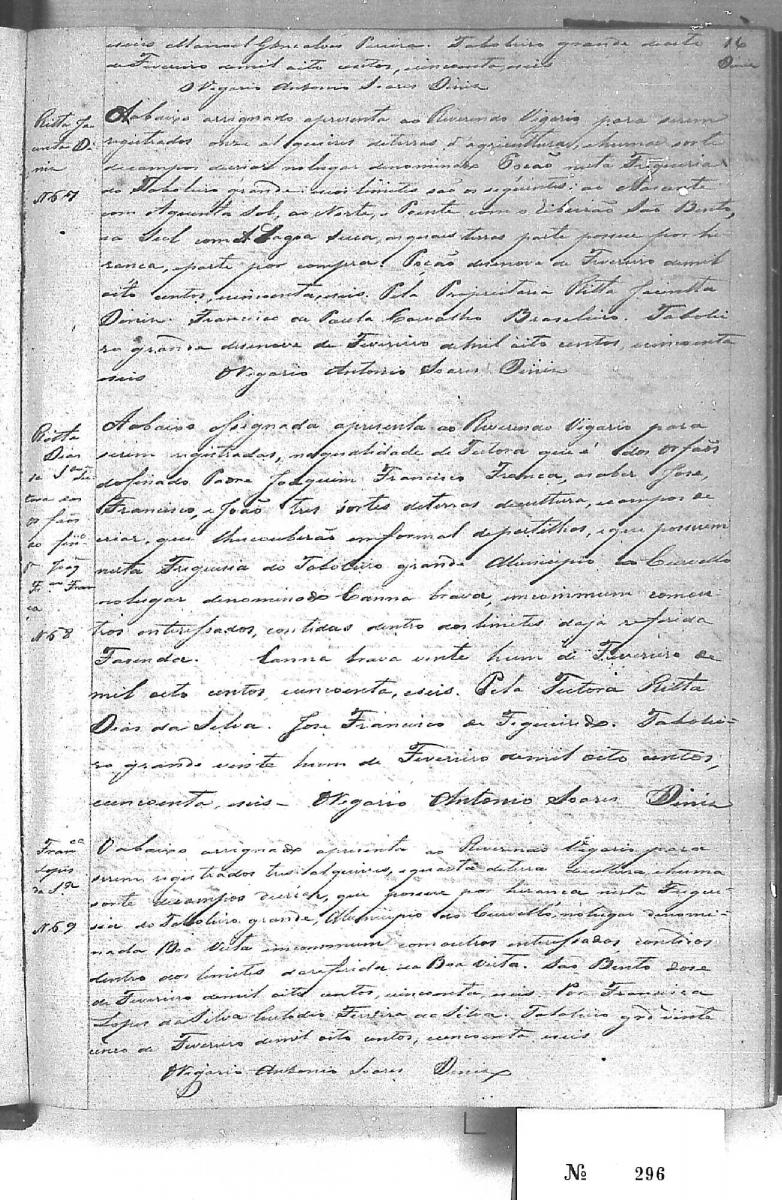 eseis Manoel Gonçalves Pereira. Taboleiro grande desoito 16
de Fevereiro demil oito centos, cincoenta, eseis Diniz
O Vigario Antonio Soares Diniz
Ritta Ja
cinta Di
niz
N 67
Aabaixo assignado apresenta ao Reverendo Vigario para serem
registrados onze alqueires deterras d'agricultura, ehuma sorte
decampos decriar no lugar denominado Poção nesta Freguezia
do Taboleiro grande: seos limites são os seguintes: ao Nascente
com Aguenta Sol, ao Norte, e Poente com o Ribeirão São Bento,
ao Sul com A Lagoa Seca, asquaes terras parte possue por he-
rança, eparte por compra. Poção desenove de Fevereiro demil
oito centos, cincoenta, eseis. Pela Proprietaria Ritta Jacintta
Diniz. Francisco de Paula Carvalho Brasileiro. Tabolei
ro grande desenove de Fevereiro demil oito centos, ecincoenta
eseis O Vigario Antonio Soares Diniz
Ritta
Dias
da Sª Tu
tora dos
orfãos
do fin.º
P.e Joaq
F.co Fran
ca
N 68
Aabaixo Assignada apresenta ao Reverendo Vigario para
serem registradas, naqualidade de Tutora que é dos orfãos
dofinado Padre Joaquim Francisco Franca, asaber Jose,
Francisco, e João tres sortes deterras decultura, ecampos de
criar, que lhescouberão emformal departilhas, e que possuem
nesta Freguesia do Taboleiro grande Municipio do Curvello
nolugar denominado Canna brava, incommum comou-
tros interessados, contidas dentro doslimites daja referida
Fasenda. Canna brava vinte hum de Fevereiro de
mil oito centos, cincoenta, eseis. Pela Tutora Ritta
Dias da Silva. Jose Francisco de Figueiredo. Tabolei-
ro grande vinte hum de Fevereiro demil oito centos,
cincoenta, eseis - O Vigario Antonio Soares Diniz
Fran.ca
Lopes
da Sª
N 69
O abaixo assignado apresenta ao Reverendo Vigario para
serem registrados tres alqueires, equarta deterra decultura, ehuma
sorte decampos decriar, que possue por herança nesta Fregue-
sia do Taboleiro grande, Municipio do Curvello, nolugar denomi-
nada Boa Vista incommum comoutros interessados, contidos
dentro dos limites dareferida da Boa Vista. São Bento dose
de Fevereiro demil oito centos, cincoenta, eseis. Por Francisca
Lopes da Silva Custodio Ferreira da Silva. Taboleiro grde vinte
cinco de Fevereiro demil oito centos, cincoenta, eseis
O Vigario Antonio Soares Diniz
Nº 296